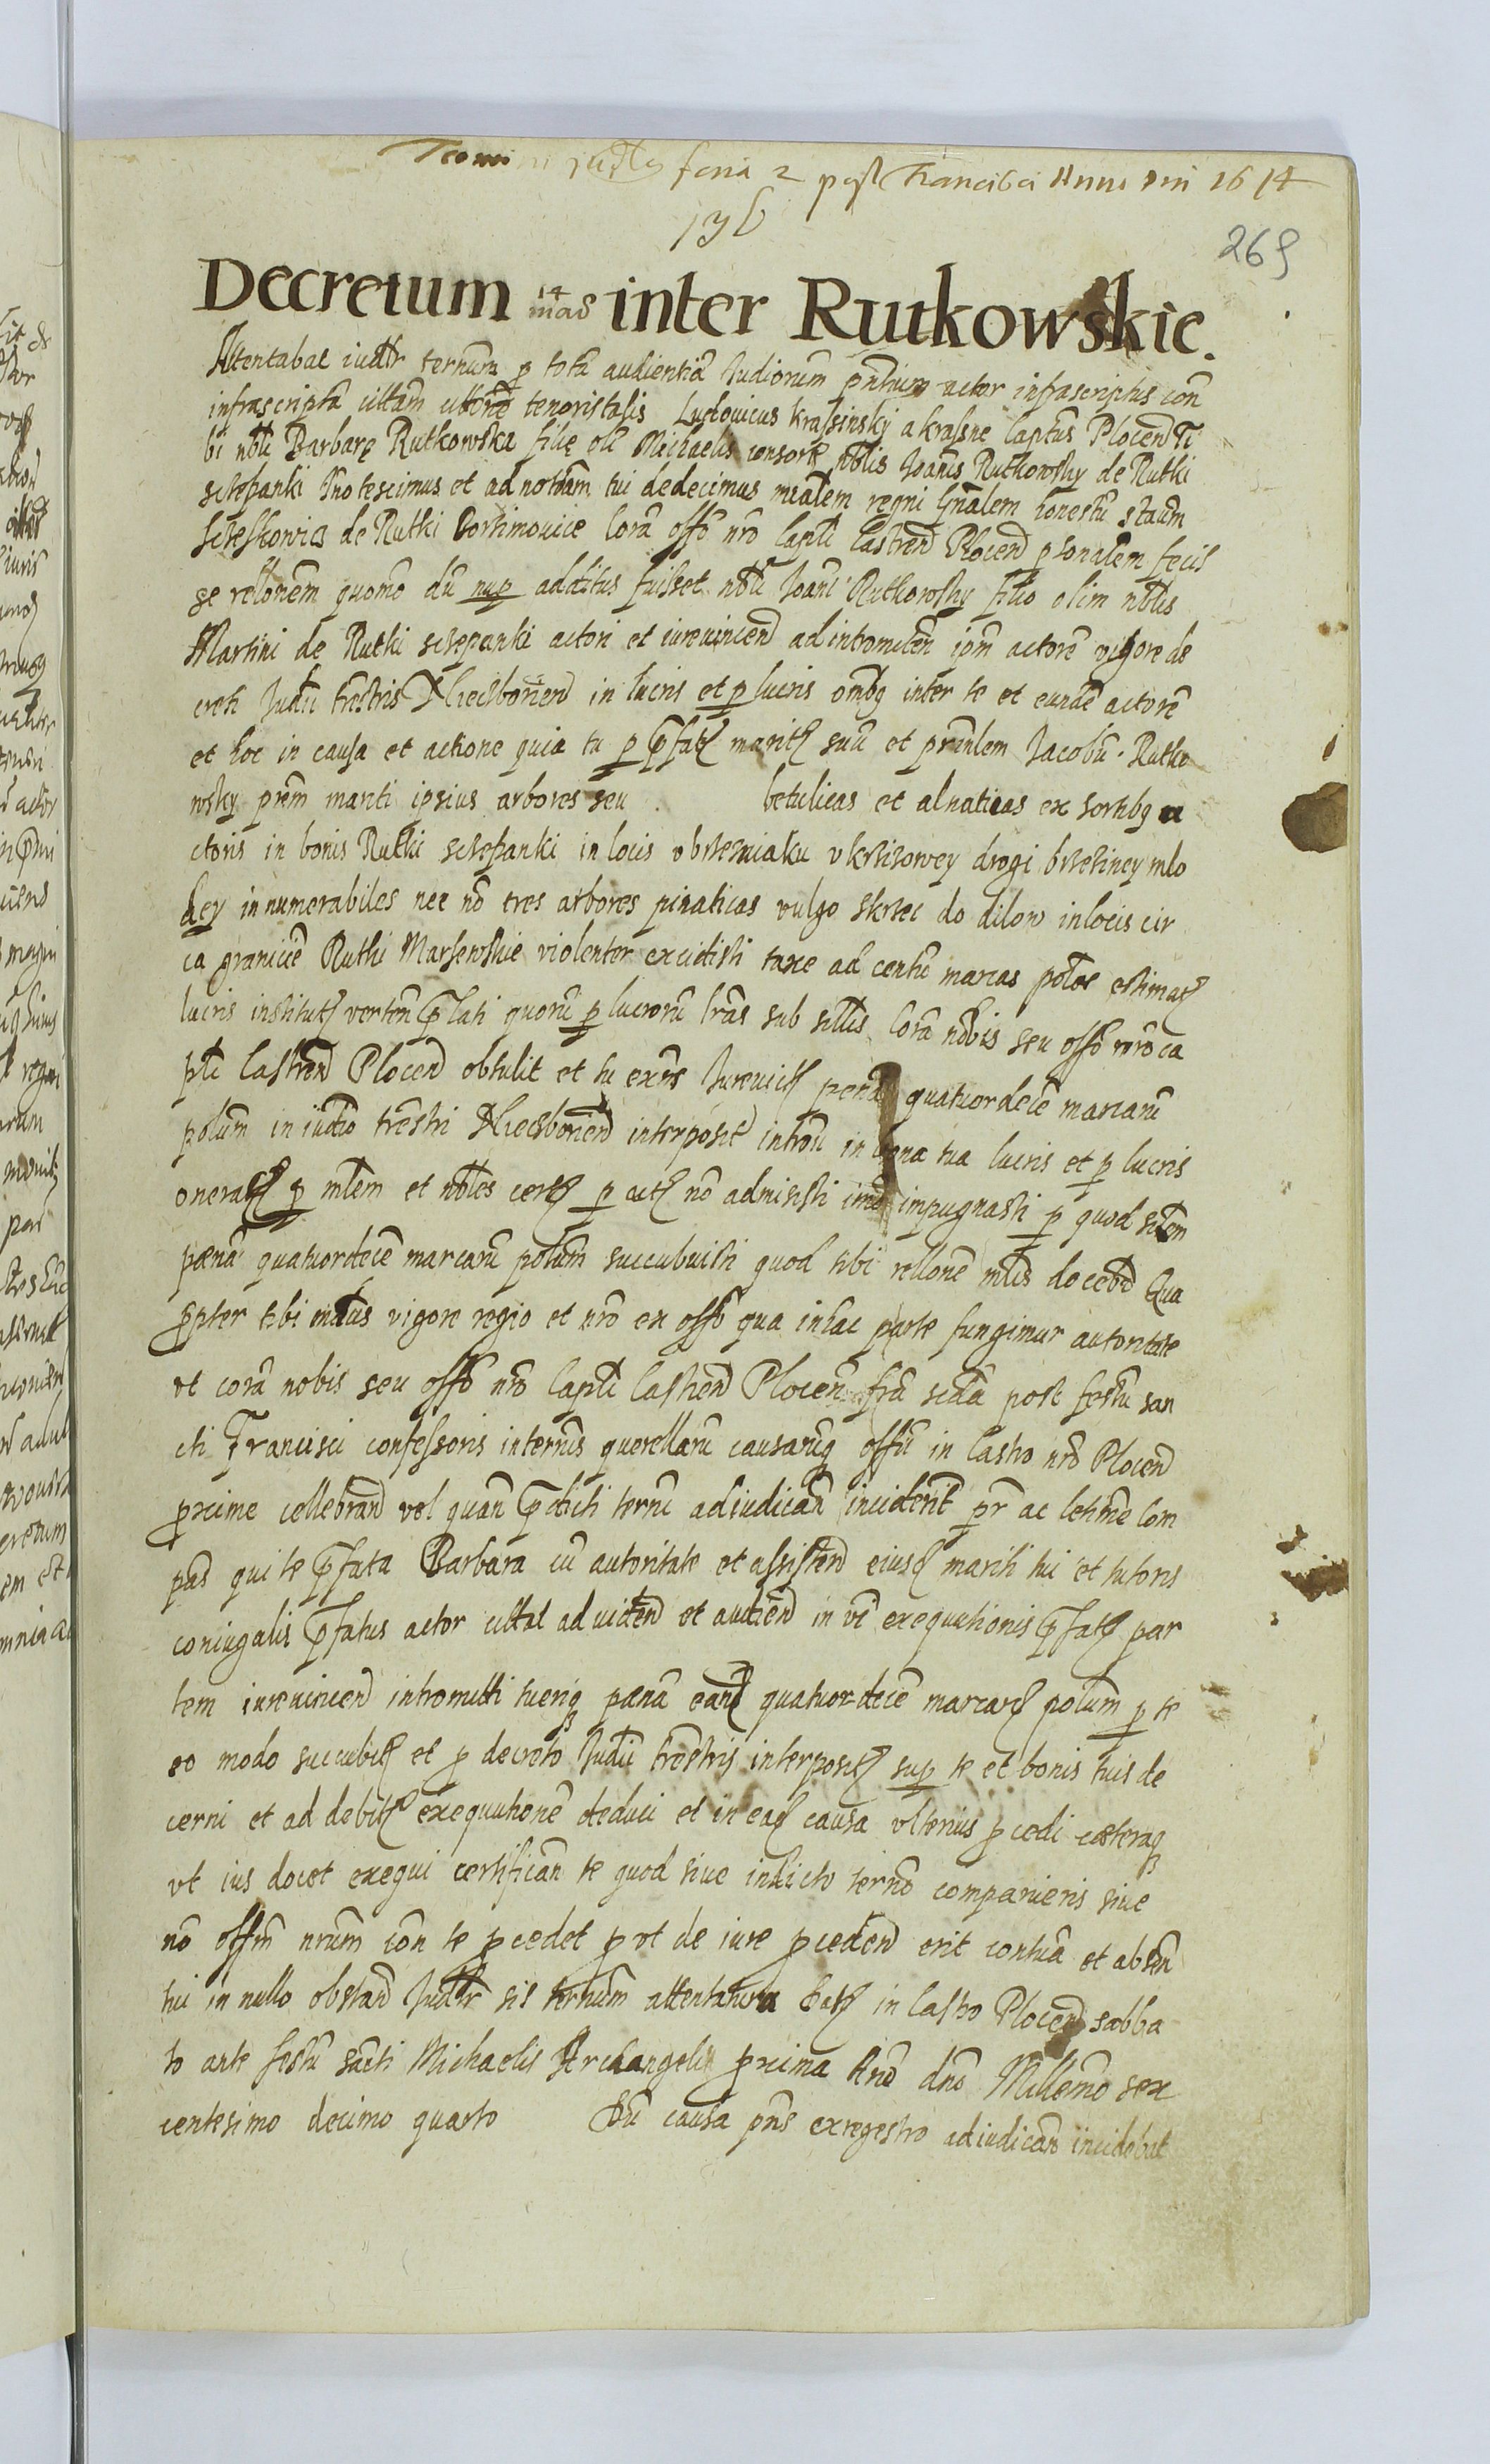 feria 2 post Francisci Anno Dni 1614
269
Decretum 14 mar inter Rutkowskie.
Attentabat iudtr ternum p totã audientiã Iudiorum pntium actor infrascriptus con
infrascriptã cittam talis Ludouicus Krassinsky a Krasne Captus Plocens Ti
bi nbli Barbarę Rutkowska filię olĩ Michaelis consorti nblis Ioanis Rutkowsky de Rutki
sczepanki Innotescimus et ad notitiam tui dedecimus mialem regni Gnalem honestũ
de Rutki Corã offo nro Capli Castren Plocen psonalem fecis
se rellonem quomo dũ nup additus fuisset nbli Ioani Rutkowsky filio olim nblis
Martini de Rutki sczepanki actori et iureuincen ad intromitten ipm actorẽ vigore de
creti Iudii trestris in lucris et p lucris ombq inter te et eundẽ actorẽ
et hoc in causa et actione quia tu p pfat maritũ suũ et prãnlem Iacobũ Rutko
wsky prem mariti ipsius arbores seu betulicas et alnaticas ex sortibq a
ctoris in bonis Rutki sczepanki in locis v brzezniaku v krzizowey drogi brzeziney mlo
dey innumerabiles nec nõ tres arbores pinaticas vulgo do dilow in locis cir
ca granicie Rutki Marszewskie violenter excidisti taxe ad centũ marcas polos estimat
lucris institut verten plati quorũ p lucrorũ lras sub sillis Corã nobis seu offo nro ca
pli Castren Plocen obtulit et tu exns Iureuict penã quatuordecẽ marcarũ
polum in iudio trestri interposit intromi in bona tua lucris et p lucris
onerat p mlem et nbles cert p act nõ admisisti imo impugnasti p quod
pœnã quatuordecẽ marcarũ polum succubuisti quod tibi rellonẽ mlis docebit Qua
ppter tibi mdãus vigore regio et nro ex offo qua in hac parte fungimur autoritate
vt corã nobis seu offo nro Capli Castren Plocen fria scda post festũ san
cti Francisci confessoris in ternis querellarũ causarũq offii in Castro nro Plocen
pxime cellebran vel quan pdicti terni adiudican inciderit pr ac letime com
pas qui te pfata Barbara cũ autoritate et assisten eiusd mariti tui et tutoris
coniugalis pfatus actor cittat ad viden et audien in vi exequutionis pfat par
tem iureuincen intromitti tuenq pœnã eand quatuordecẽ marcar polum p te
eo modo succubit et p decreto Iudii trestris interposit sup te et bonis tuis de
cerni et ad debit exequutionẽ deduci et in ead causa vlterius pcedi cæteraq
vt ius docet exequi certifican te quod siue in dicto terno comparueris siue
nõ offm nrum con te pcedet p vt de iure pceden erit contua et absen
tui in nullo obstan Iudtr sis ternum attentatura Dat in Castro Plocen sabba
to ante festũ sancti Michaelis Archangeli pxima Ano dno Millemo sex
centesimo decimo quarto Dũ causa pns ex regestro adiudican incidebat